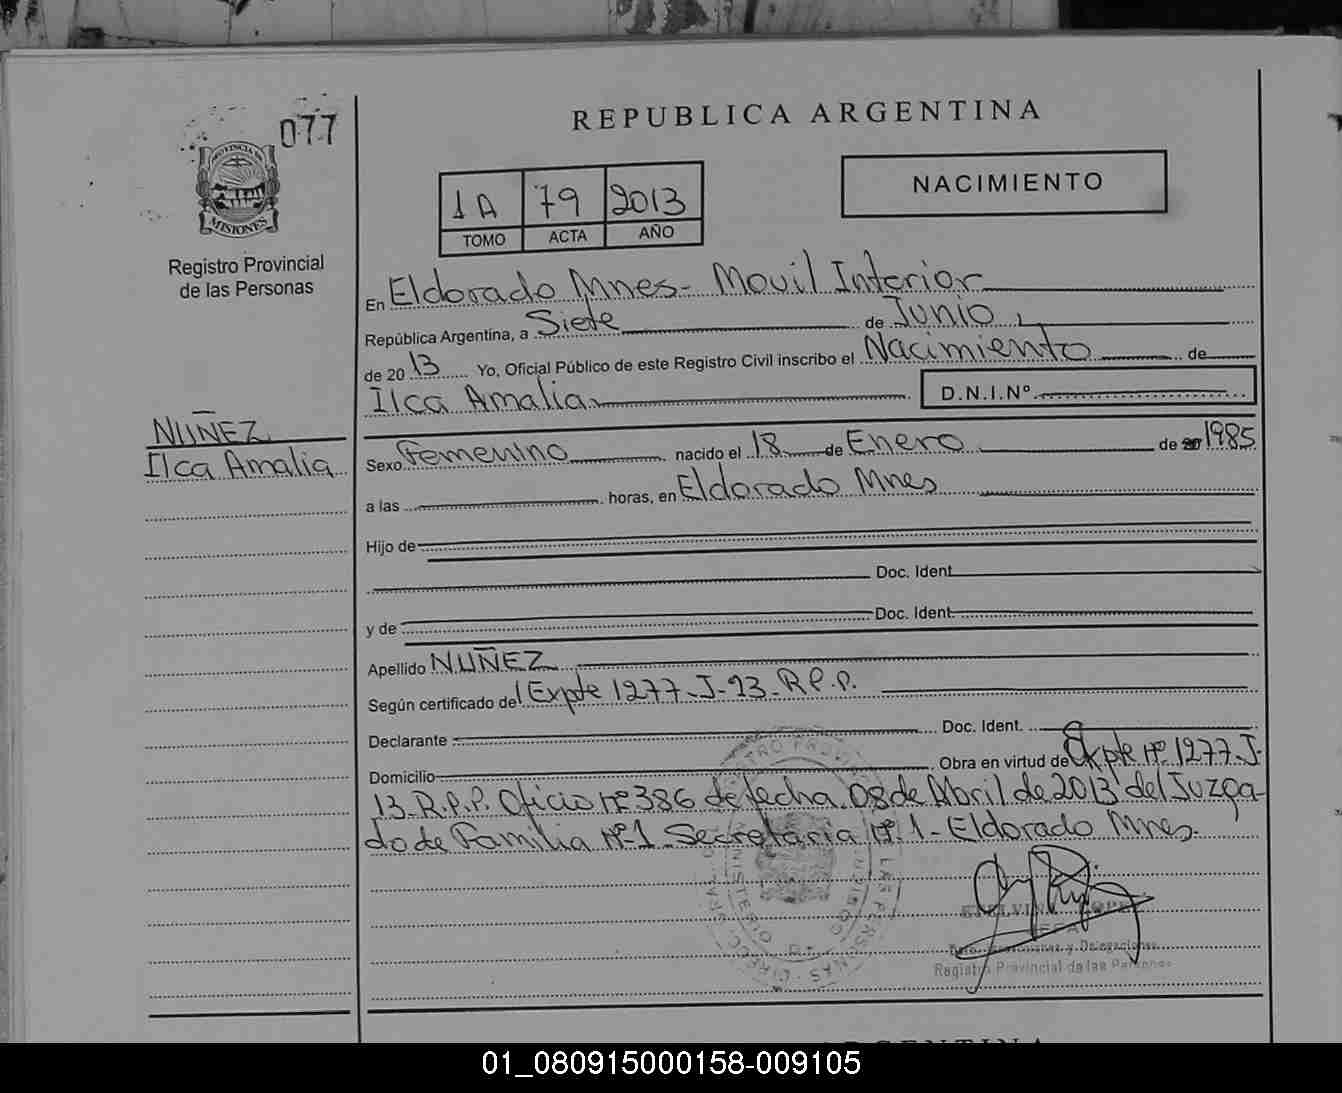 077
REPUBLICA ARGENTINA
PROVINCIA DE
MISIONES
Registro Provincial
de las Personas
1A 79 2013
TOMO ACTA AÑO
NACIMIENTO
En Eldorado Mnes- Movil Interior
República Argentina, a Siete de Junio
de 2013 Yo, Oficial Público de este Registro Civil inscribo el Nacimiento de
Ilca Amalia D.N.I.Nº
NUÑEZ
Ilca Amalia
Sexo Femenino nacido el 18 de Enero de 20 1985
a las horas, en Eldorado Mnes
Hijo de
Doc. Ident
y de Doc. Ident
Apellido NUÑEZ
Según certificado del Expte 1277-J-13-R.P.P.
Declarante Doc. Ident.
Domicilio Obra en virtud de Expte Nº 1277-J-
13-R.P.P. Oficio Nº 386 de fecha 08 de Abril de 2013 del Juzga-
do de Familia Nº 1 - Secretaria Nº 1 - Eldorado Mnes.
y Delegaciones
Registro Provincial de las Personas
01_080915000158-009105